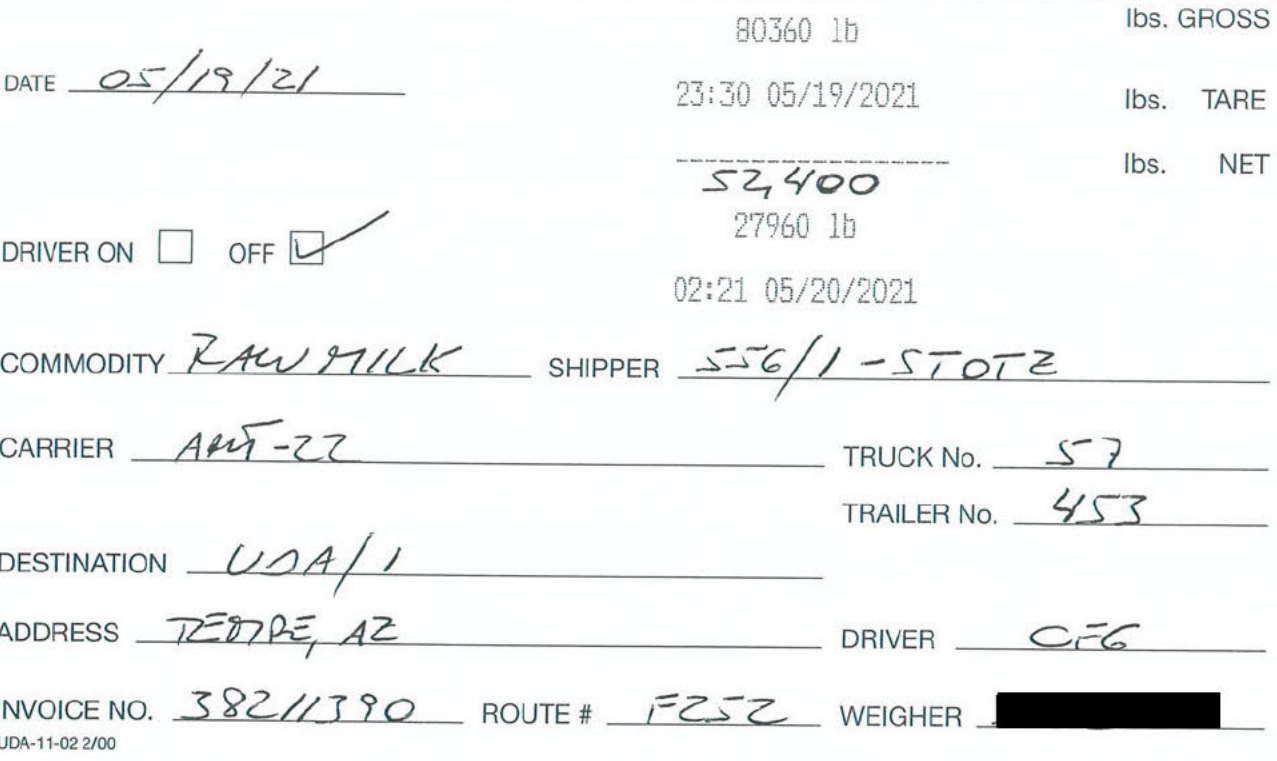 80360 lb lbs. GROSS
DATE 05/19/21
23:30 05/19/2021 lbs. TARE
lbs. NET
52,400
27960 lb
DRIVER ON OFF
02:21 05/20/2021
COMMODITY RAW MILK SHIPPER 556/1 - STOTZ
CARRIER AMT-22 TRUCK No. 57
TRAILER No. 453
DESTINATION UDA/1
ADDRESS TEMPE, AZ DRIVER CFG
NVOICE NO. 38211390 ROUTE # F252 WEIGHER
UDA-11-02 2/00